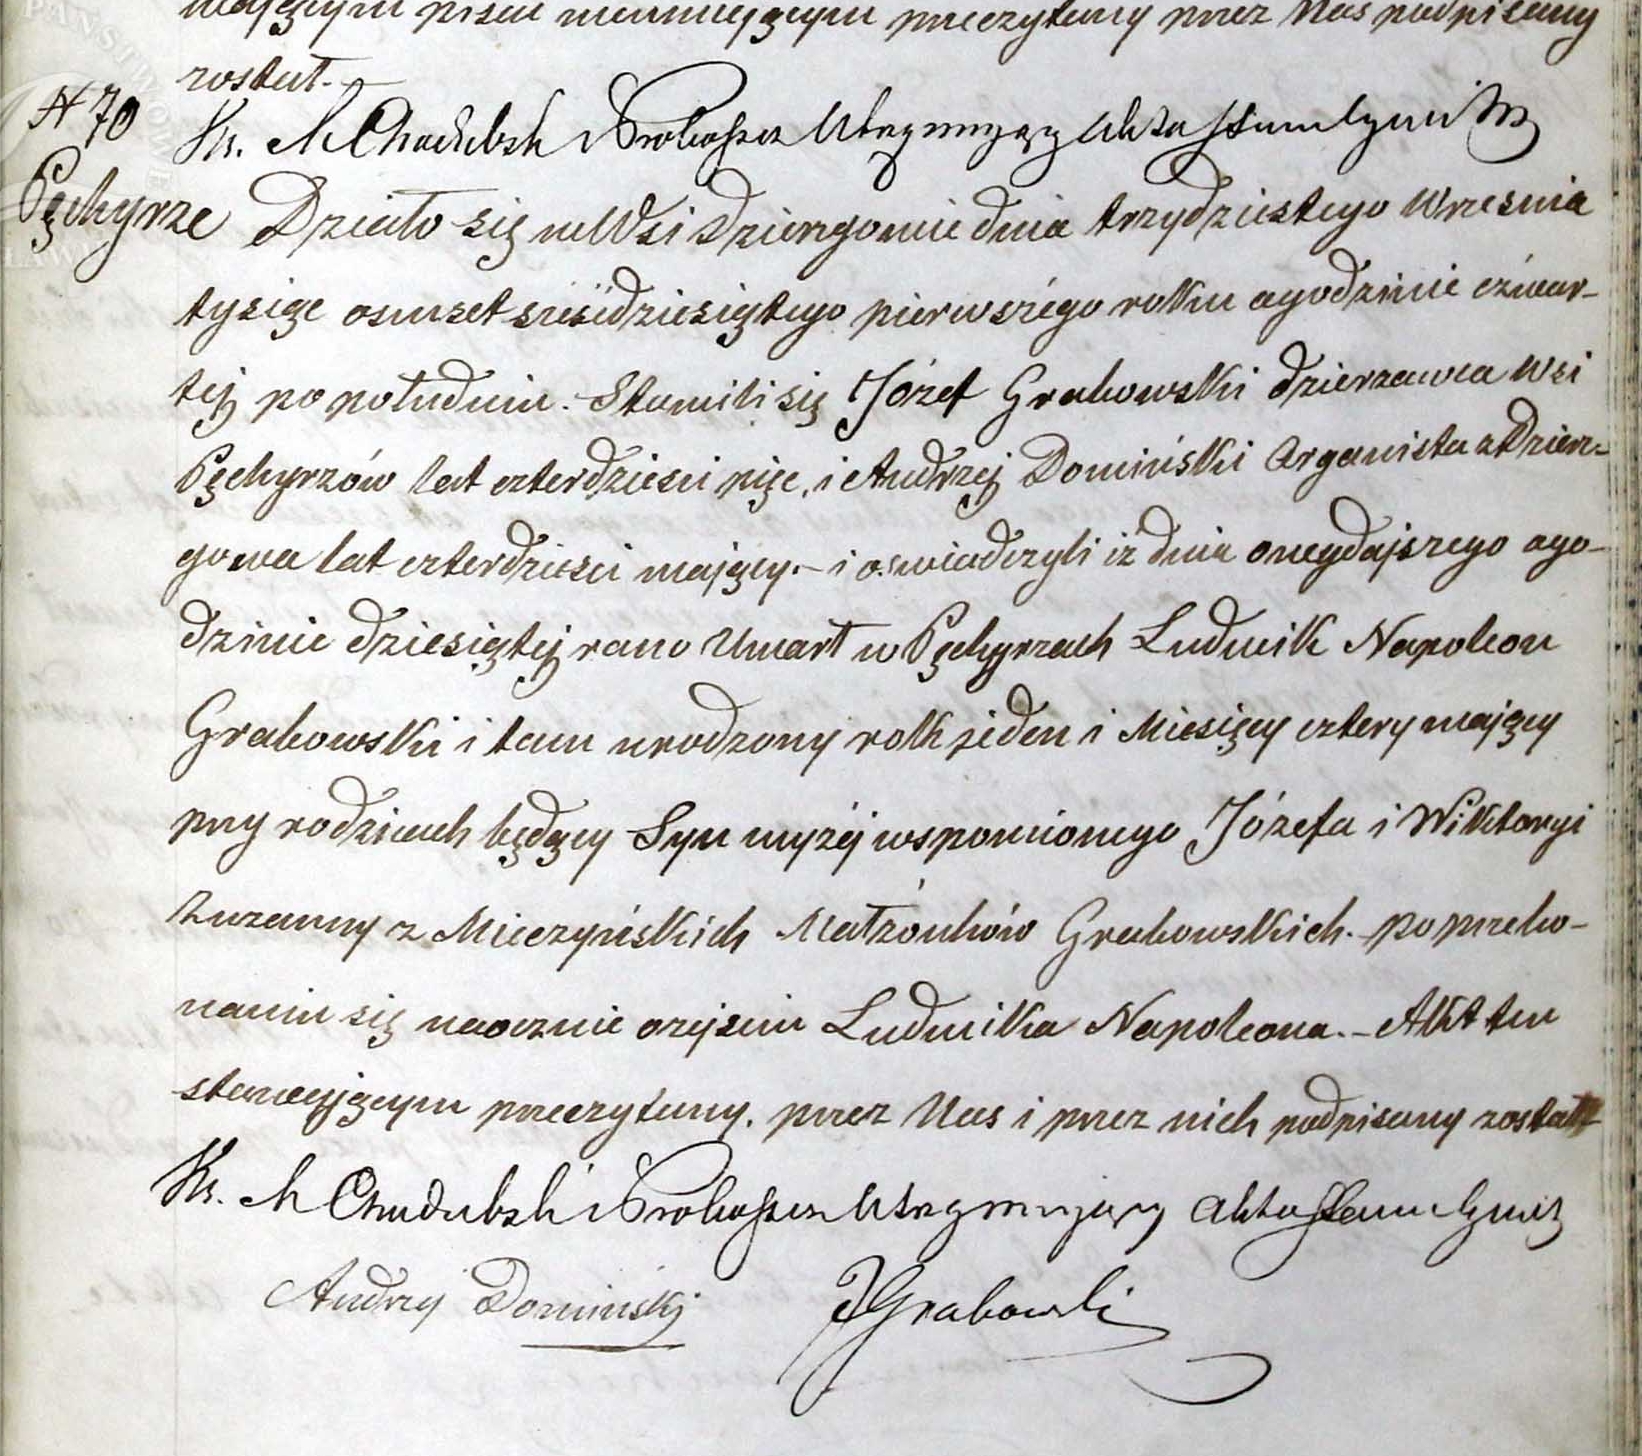 mającym pisać nieumiejącym przeczytany przez Nas podpisany
został.-
N 70
Ks. M Chadubski Proboszcz Utrzymujący Akta Stanu Cywil
Pęchyrze
Działo się we Wsi Dziergowie dnia trzydziestego Wrzesnia
tysiąc osmset sześćdziesiątego pierwszégo rokku agodzinie czwar-
téj po południu. Stawili się Józef Grabowski dzierzawca Wsi
Pęchyrzów lat czterdziesci pięc, i Andrzéj Domiński Organista z Dzier-
gowa lat czterdziesci mający.- i oswiadczyli iz dnia onegdajszego ago-
dzinie dziesiątéj rano Umarł w Pęchyrzach Ludwik Napoleon
Grabowski i tam urodzony rokk jeden i Miesięcy cztery mający
przy rodzicach będący Syn wyzéj wspomionego Józefa i Wiktoryi
Zuzanny z Mieczyńskich Małzonków Grabowskich. po przeko-
naniu się naocznie ozejsciu Ludwika Napoleona.- Akt ten
stawającym przeczytany. przez Nas i przez nich podpisany został
Ks. M Chadubski Proboszcz Utrzymujący Akta Stanu Cywil
Andrzej Dominskj
J Grabowski